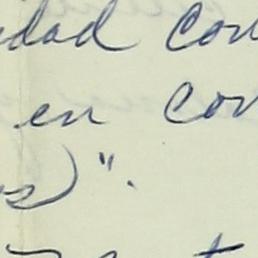 dad con
en con
s)".